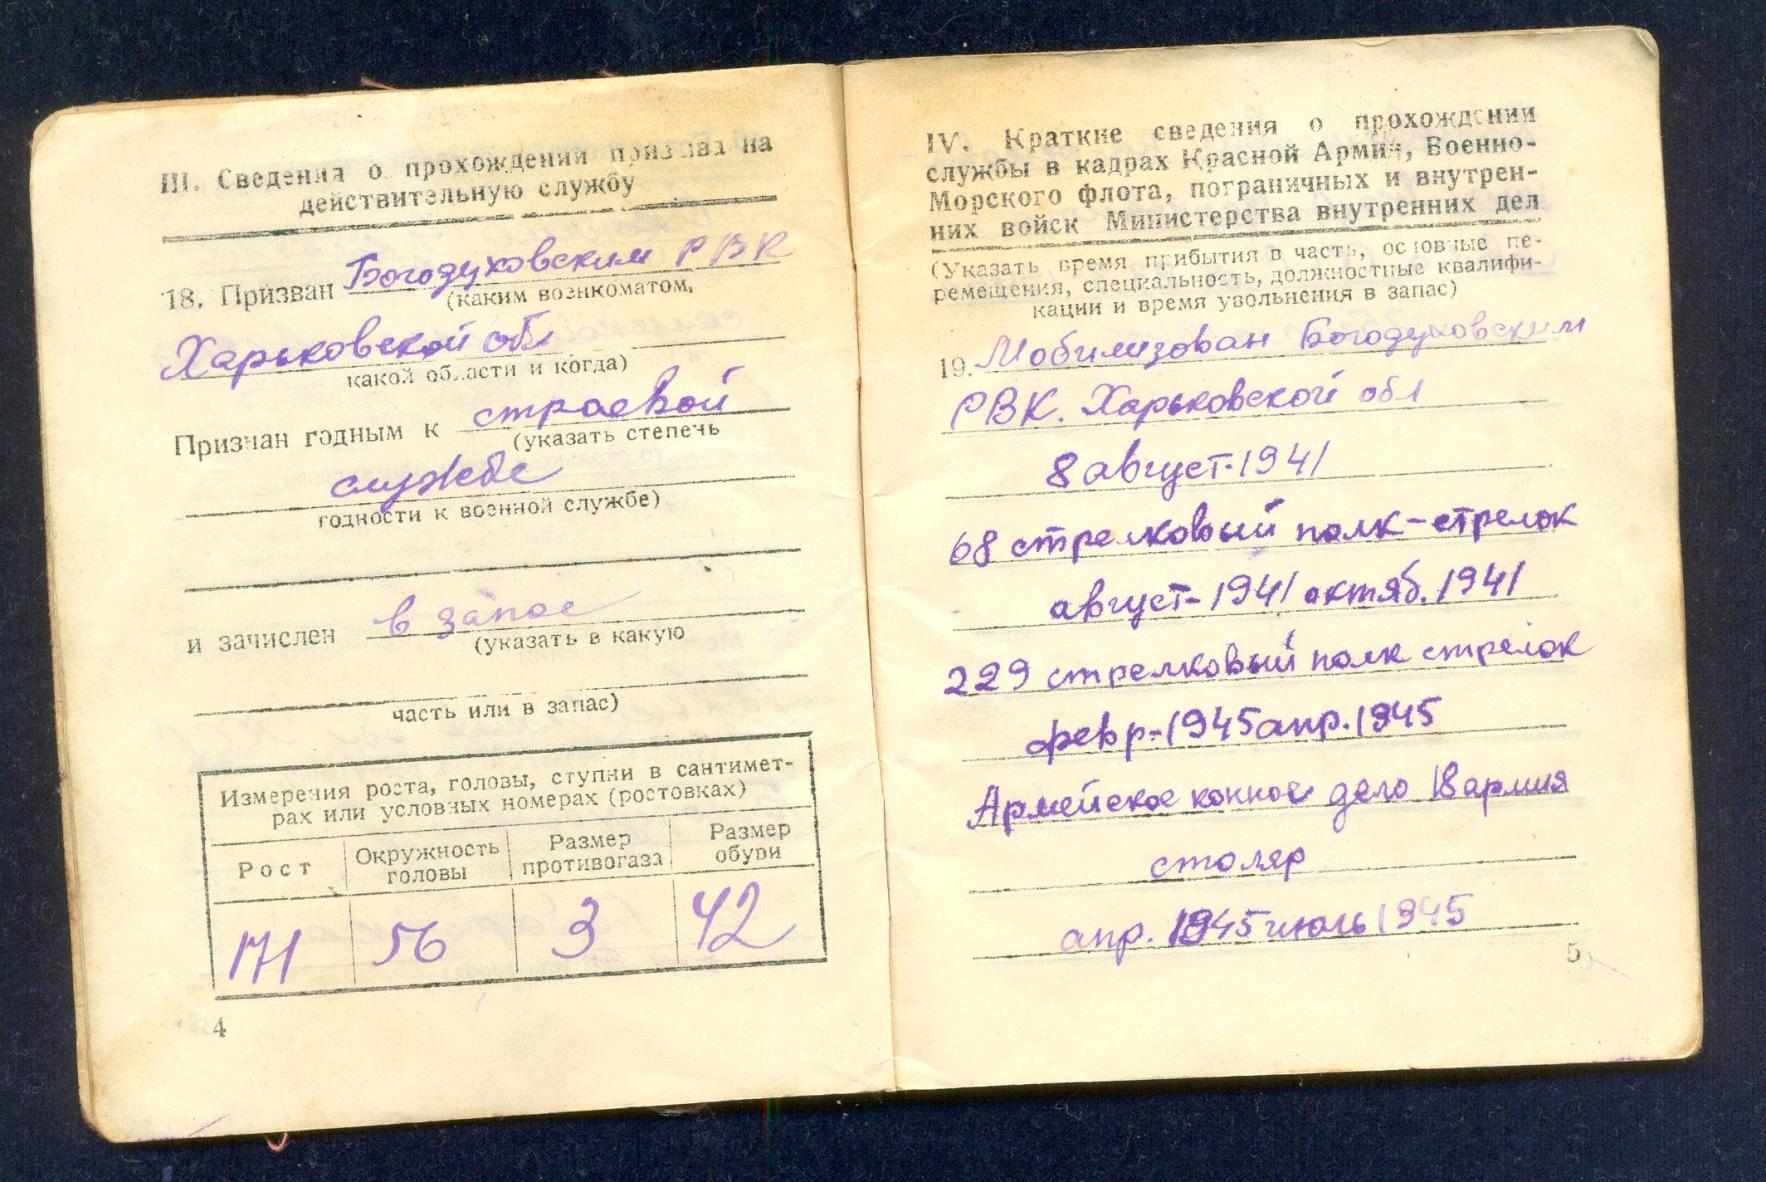 III. Сведения о прохождении призыва на
действительную службу
Богодуховским РВК
18. Призван
(каким военкоматом,
Харьковской обл
какой области и когда)
Признан годным к строевой
(указать степень
службе
годности к военной службе)
и зачислен в запас
(указать в какую
часть или в запас)
Измерения роста, головы, ступни в сантимет-
рах или условных номерах (ростовках)
Рост
Окружность
головы
Размер
противогаза
Размер
обуви
171 56 3 42
4
IV. Краткие сведения о прохождении
службы в кадрах Красной Армии, Военно-
Морского флота, пограничных и внутрен-
них войск Министерства внутренних дел
(Указать время прибытия в часть, основные пе-
ремещения, специальность, должностные квалифи-
кации и время увольнения в запас)
19. Мобилизован Богодуховским
РВК. Харьковской обл
8 август-1941
68 стрелковый полк-стрелок
август-1941 октяб. 1941
229 стрелковый полк стрелок
февр-1945 апр. 1945
Армейское конное депо 18 армия
столяр
апр. 1945 июль 1945
5